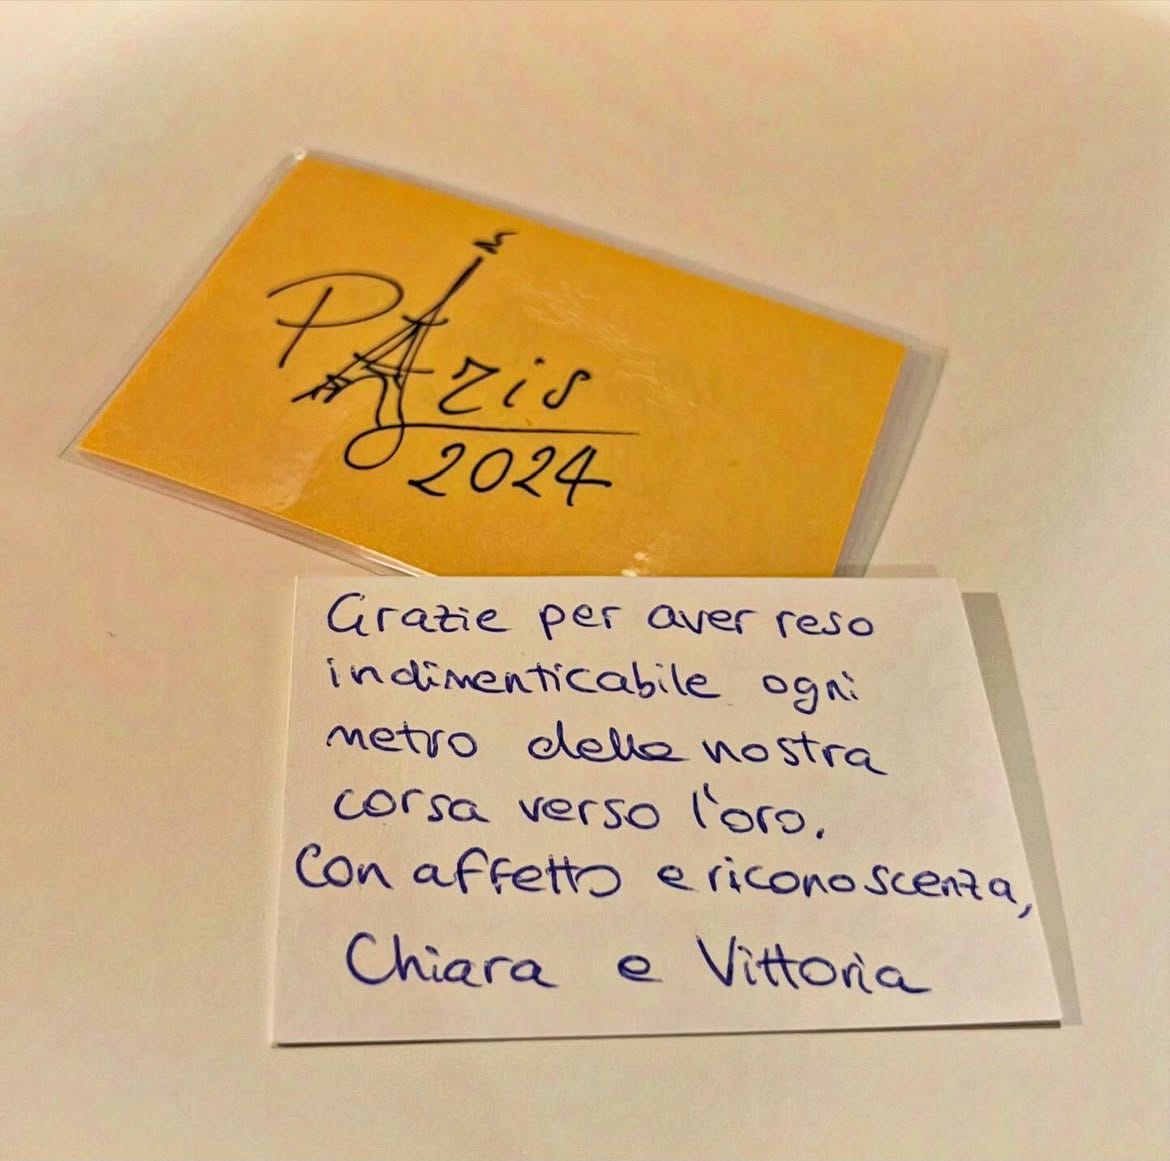 PAris
2024
Grazie per aver reso
indimenticabile ogni
metro della nostra
corsa verso l'oro.
Con affetto e riconoscenza,
Chiara e Vittoria